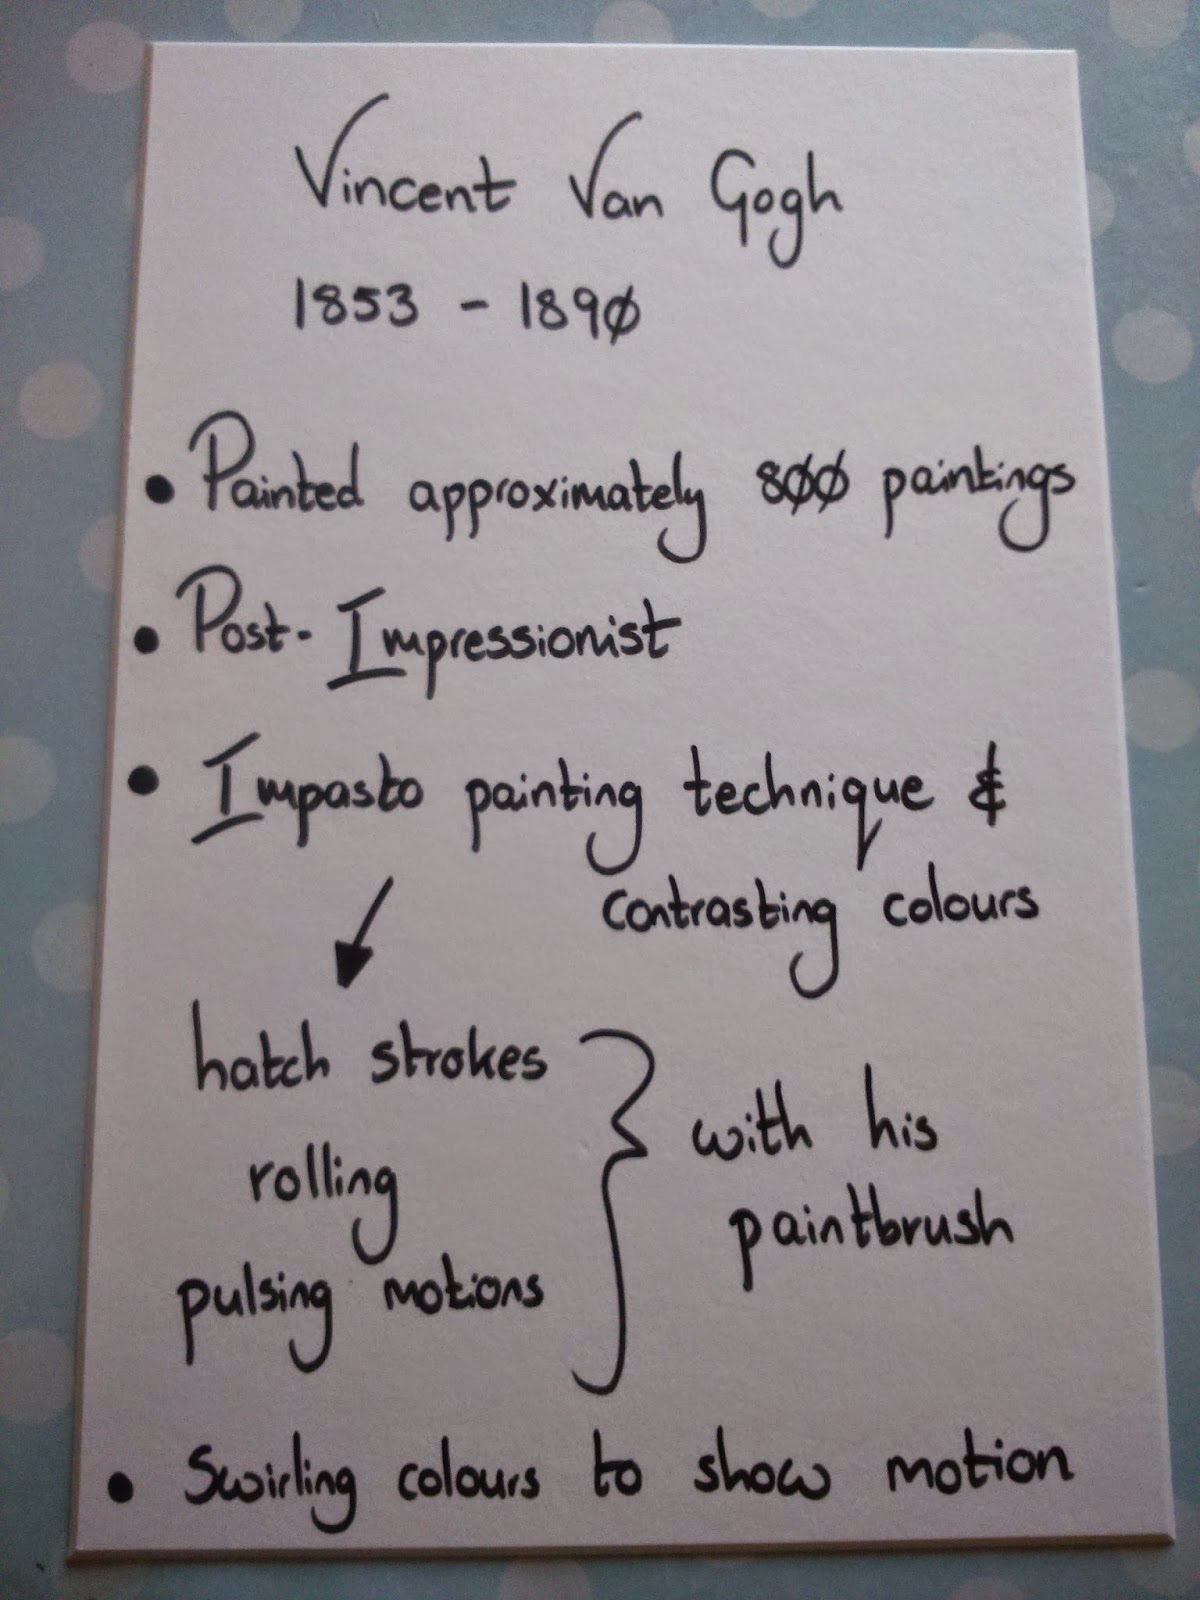 Vincent Van Gogh
1853 - 1890
• Painted approximately 800 paintings
• Post-Impressionist
• Impasto painting technique &
contrasting colours
hatch strokes
rolling
pulsing motions
with his
paintbrush
• Swirling colours to show motion